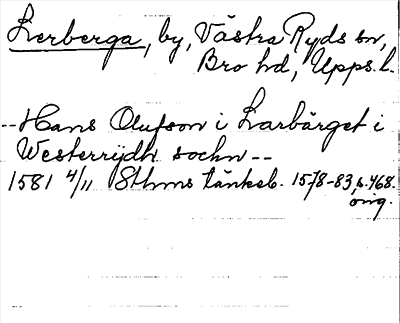 Lerberga, by, Västra Ryds sn,
Bro hd, Upps. l.
--Hans Olufson i Larbärget i
Westerrijdh sochn--
1581 4/11 Sthms tänkeb. 1578-83, s. 468.
orig.